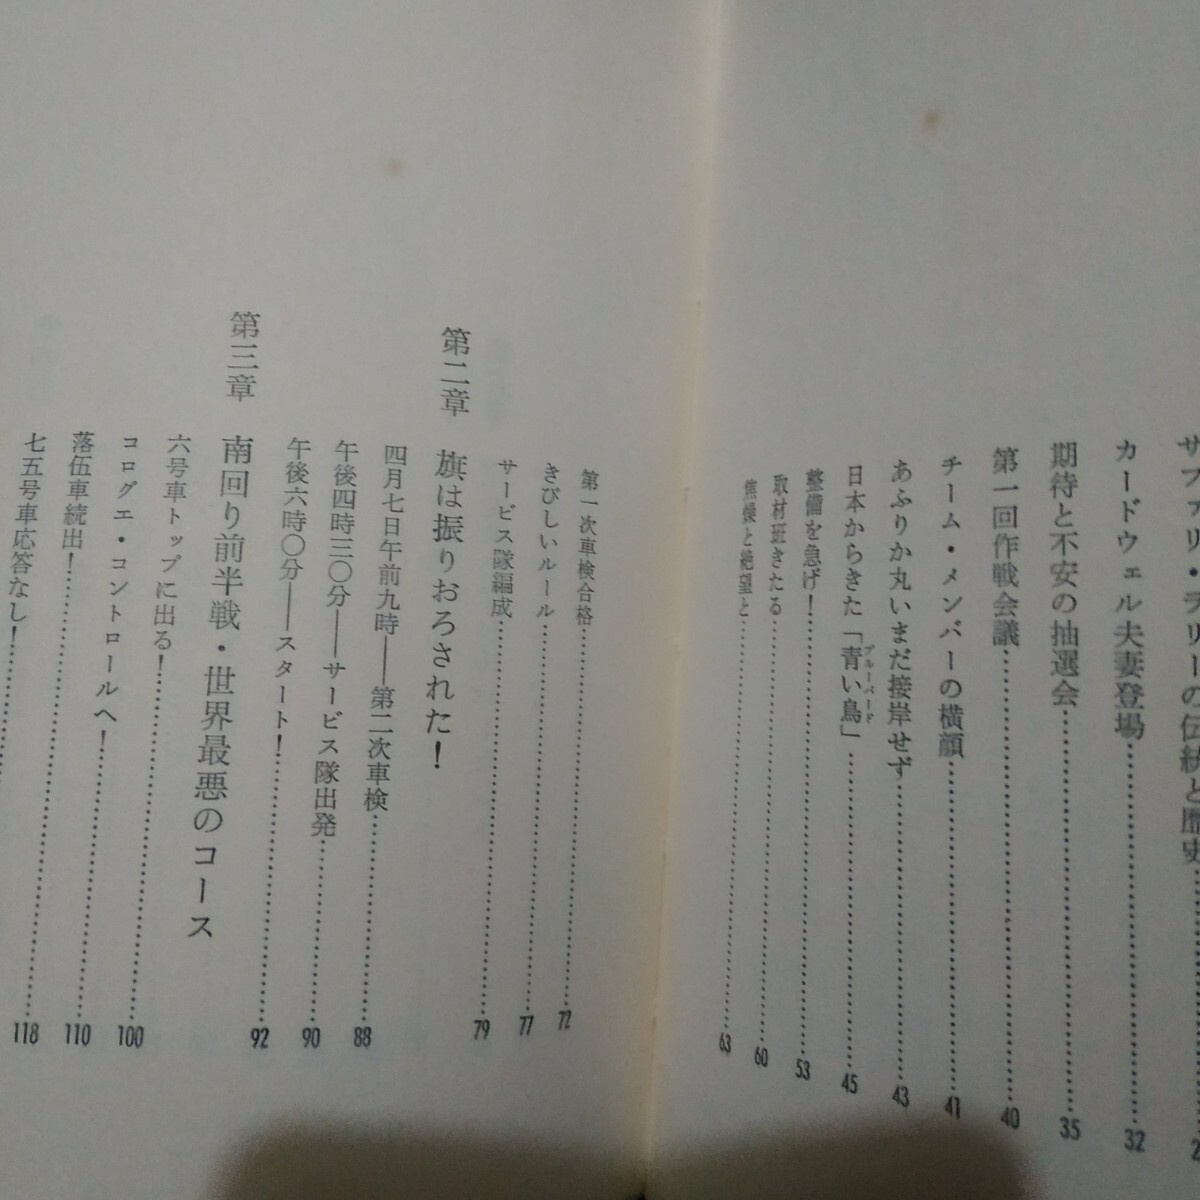 サファリ・ラリーの伝統と歴史
カードウェル夫妻登場 32
期待と不安の抽選会 35
第一回作戦会議 40
チーム・メンバーの横顔 41
あふりか丸いまだ接岸せず 43
日本からきた「青い鳥」 45
ブルーバード
整備を急げ! 53
取材班きたる 60
焦燥と絶望と 63
第一次車検合格 72
きびしいルール 77
サービス隊編成 79
第二章 旗は振りおろされた!
四月七日午前九時――第二次車検 88
午後四時三〇分――サービス隊出発 90
午後六時〇分――スタート! 92
第三章 南回り前半戦・世界最悪のコース
六号車トップに出る! 100
コログエ・コントロールへ! 110
落伍車続出! 118
七五号車応答なし!